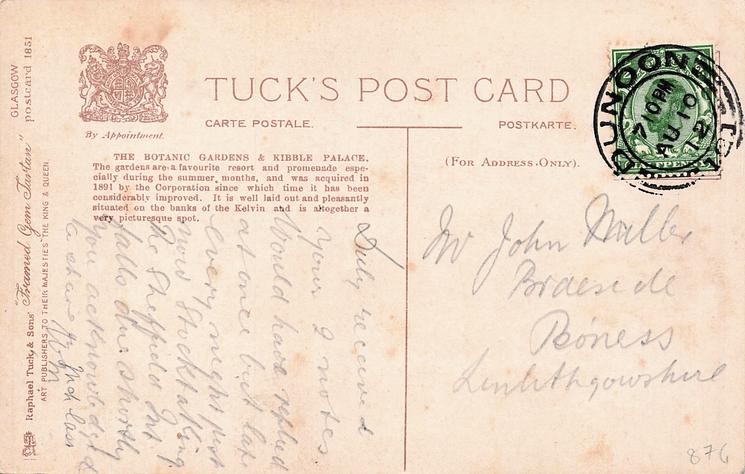 TUCK'S POST CARD
CARTE POSTALE.
POSTKARTE.
By Appointment.
(For Address Only).
THE BOTANIC GARDENS & KIBBLE PALACE.
The gardens are a favourite resort and promenade espe-
cially during the summer months, and was acquired in
1891 by the Corporation since which time it has been
considerably improved. It is well laid out and pleasantly
situated on the banks of the Kelvin and is altogether a
very picturesque spot.
GLASGOW
postcard 1851
Raphael Tuck & Sons' "Framed Gem Tartan"
ART PUBLISHERS TO THEIR MAJESTIES THE KING & QUEEN.
DUNOON
7 10 PM
AU 10
12
Duly received
your 2 notes
Would have replied
at once but late
every night just
now Stocktaking
The Sheffield Int.
falls due shortly
you acknowdgd
last
Mr John Miller
Braeside
Boness
Linlithgowshire
876